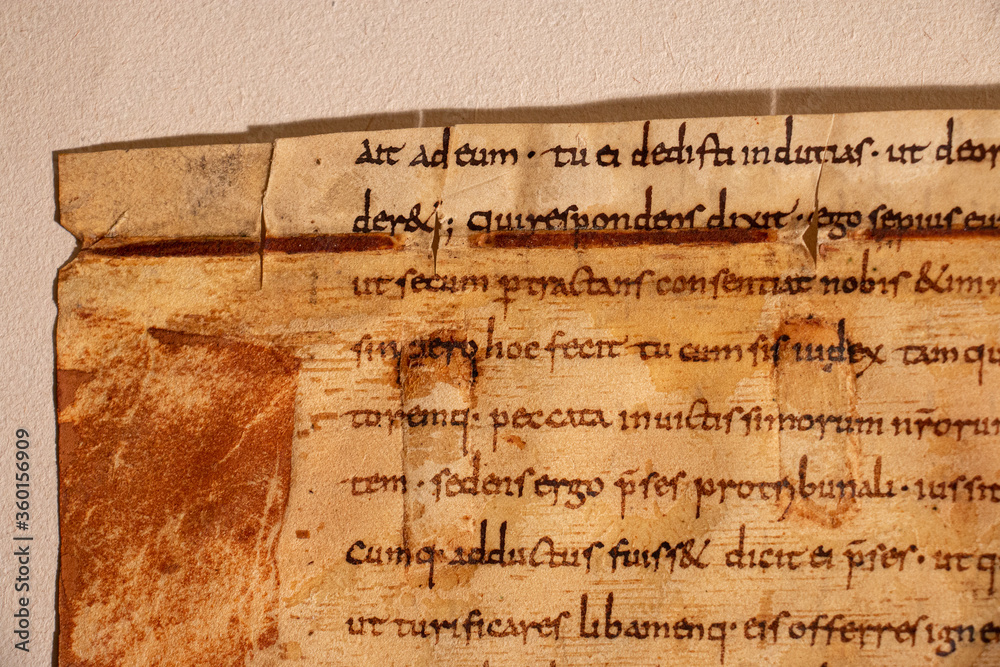 Ait ad eum · tu ei dedisti inducias · ut deor
der&; Qui respondens dixit · ego sepius eu
ut secum ptractans consentiat nobis &imm
hoc fecit tu cum sis iudex tam qu
toremq· peccata invictissimorum nr̄oru
tem · sedens ergo p̄ses protribunali · iussit
Cumq· adductus fuiss& dicit ei p̄ses · ut q
ut turificares libamenq· eis offerres igne
Adobe Stock | #360156909